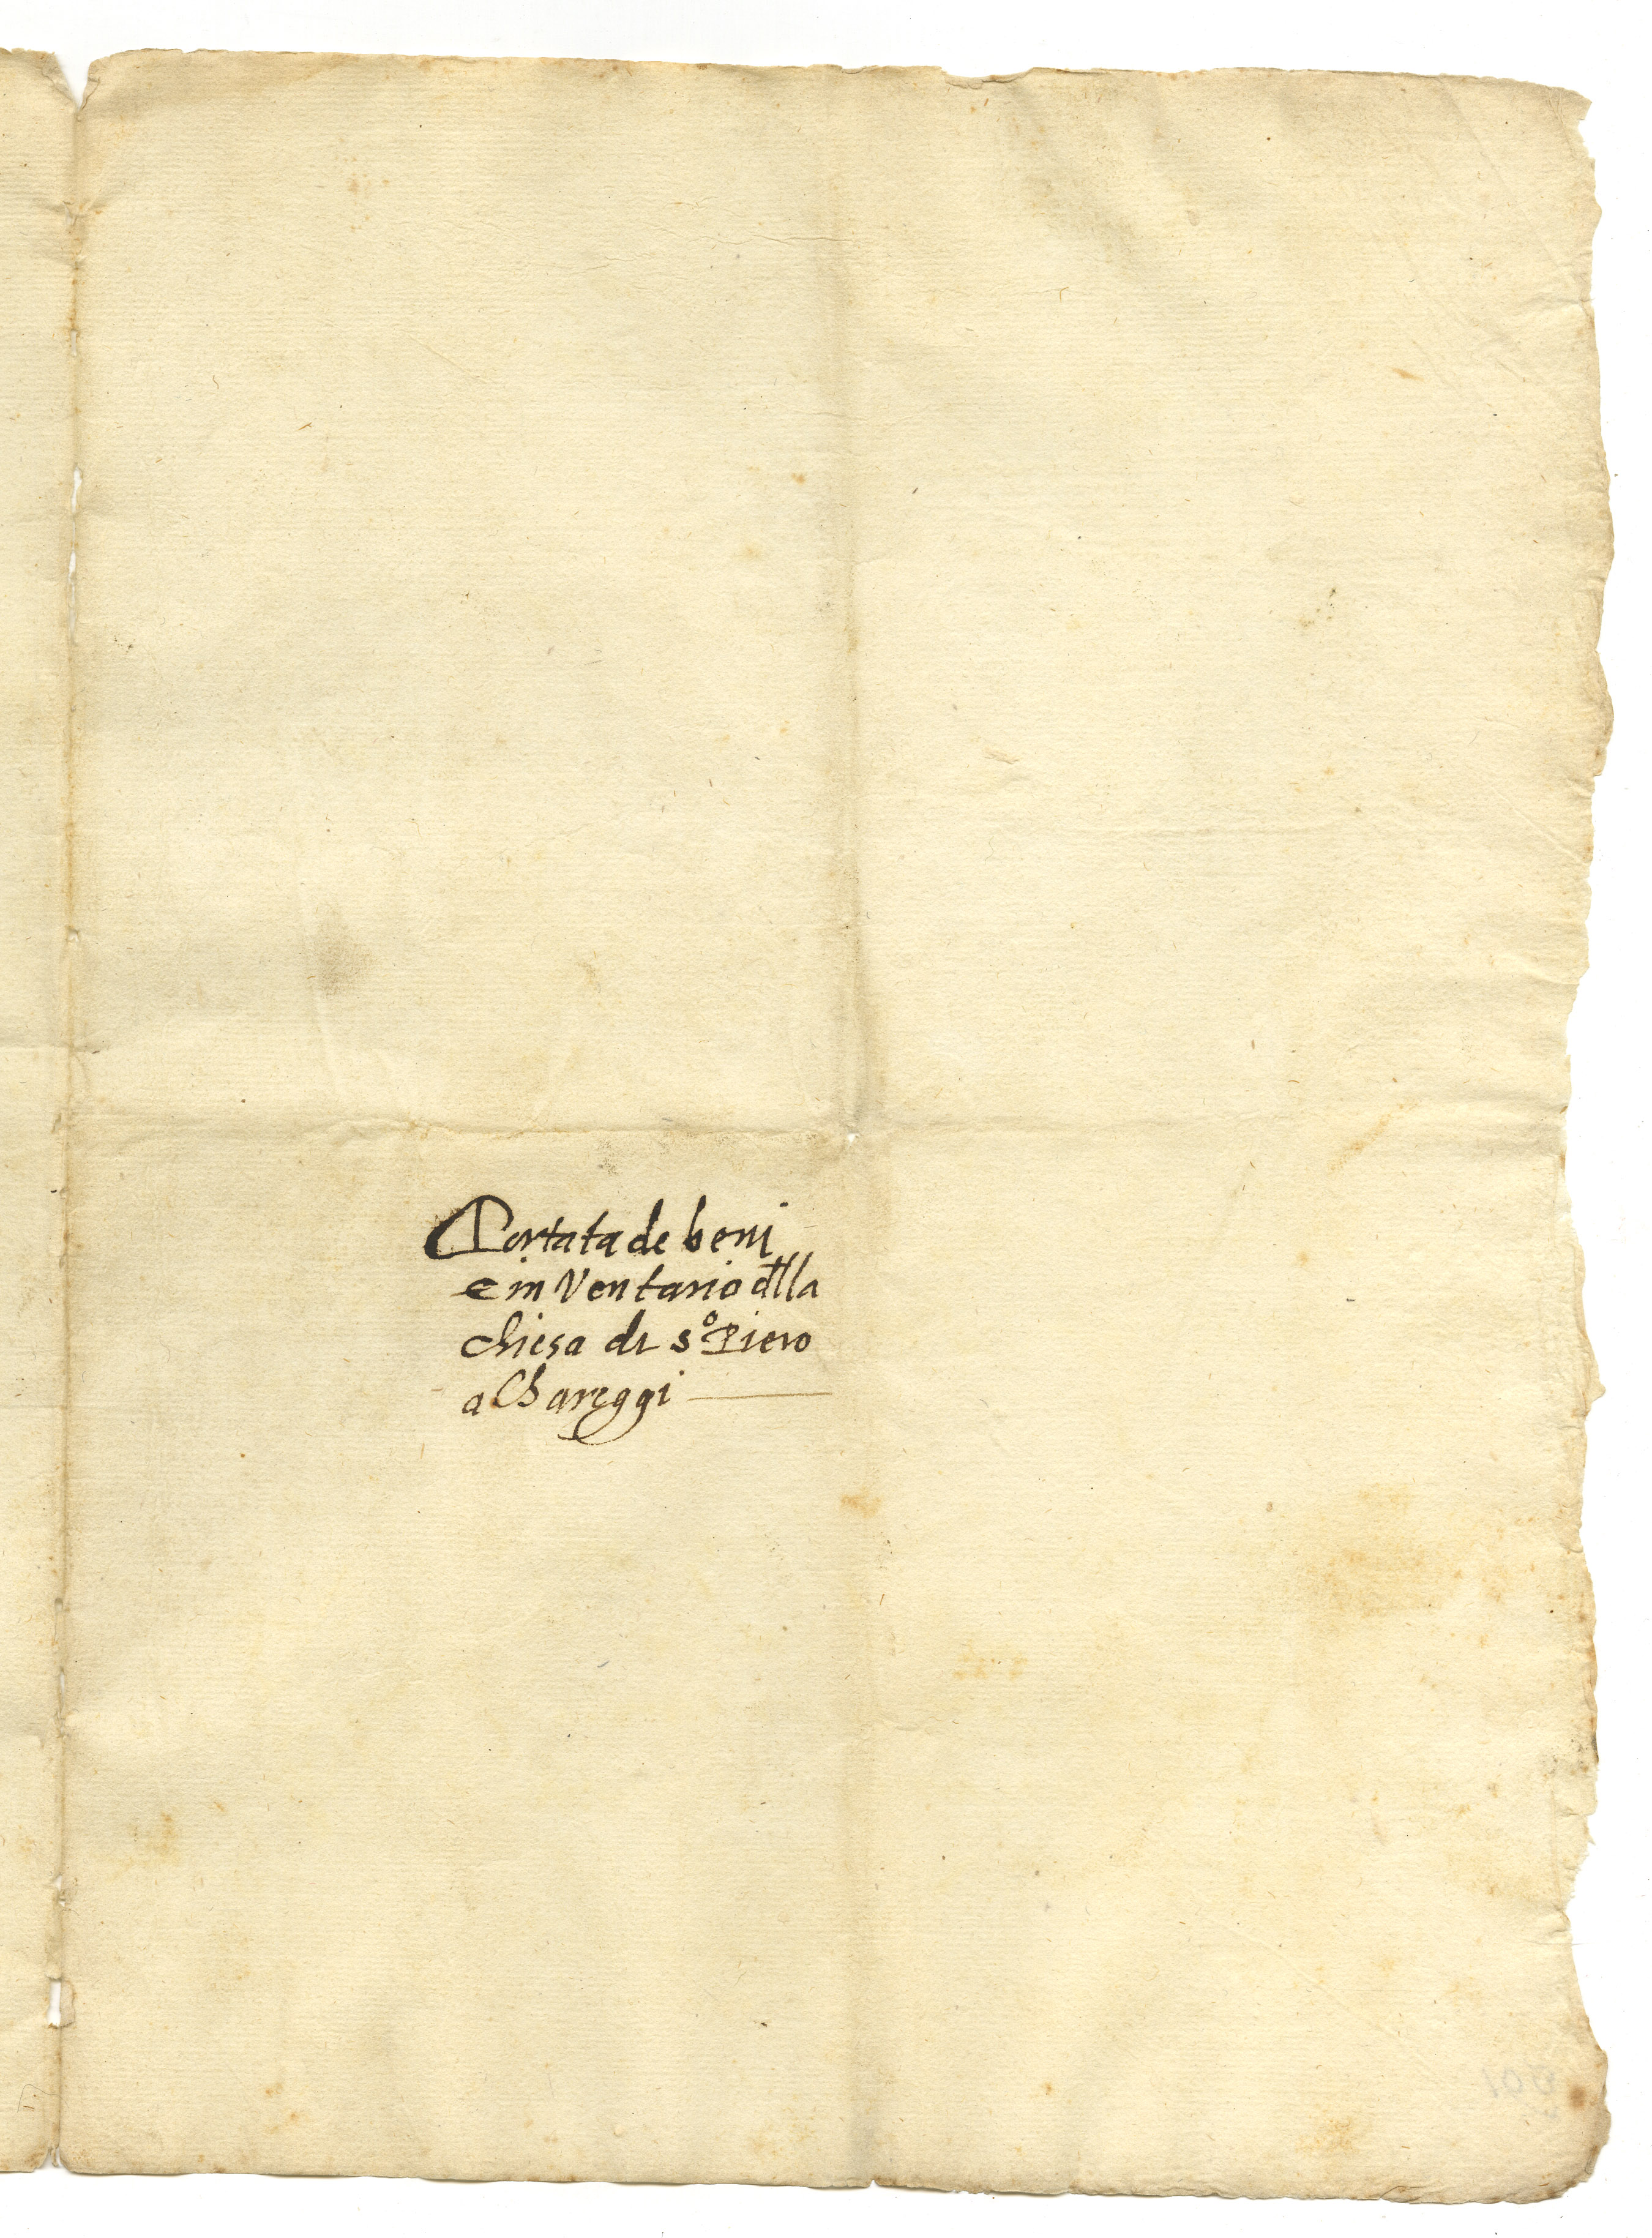 Portata de beni
e inVentario dlla
chiesa di sº Piero
a Chareggi